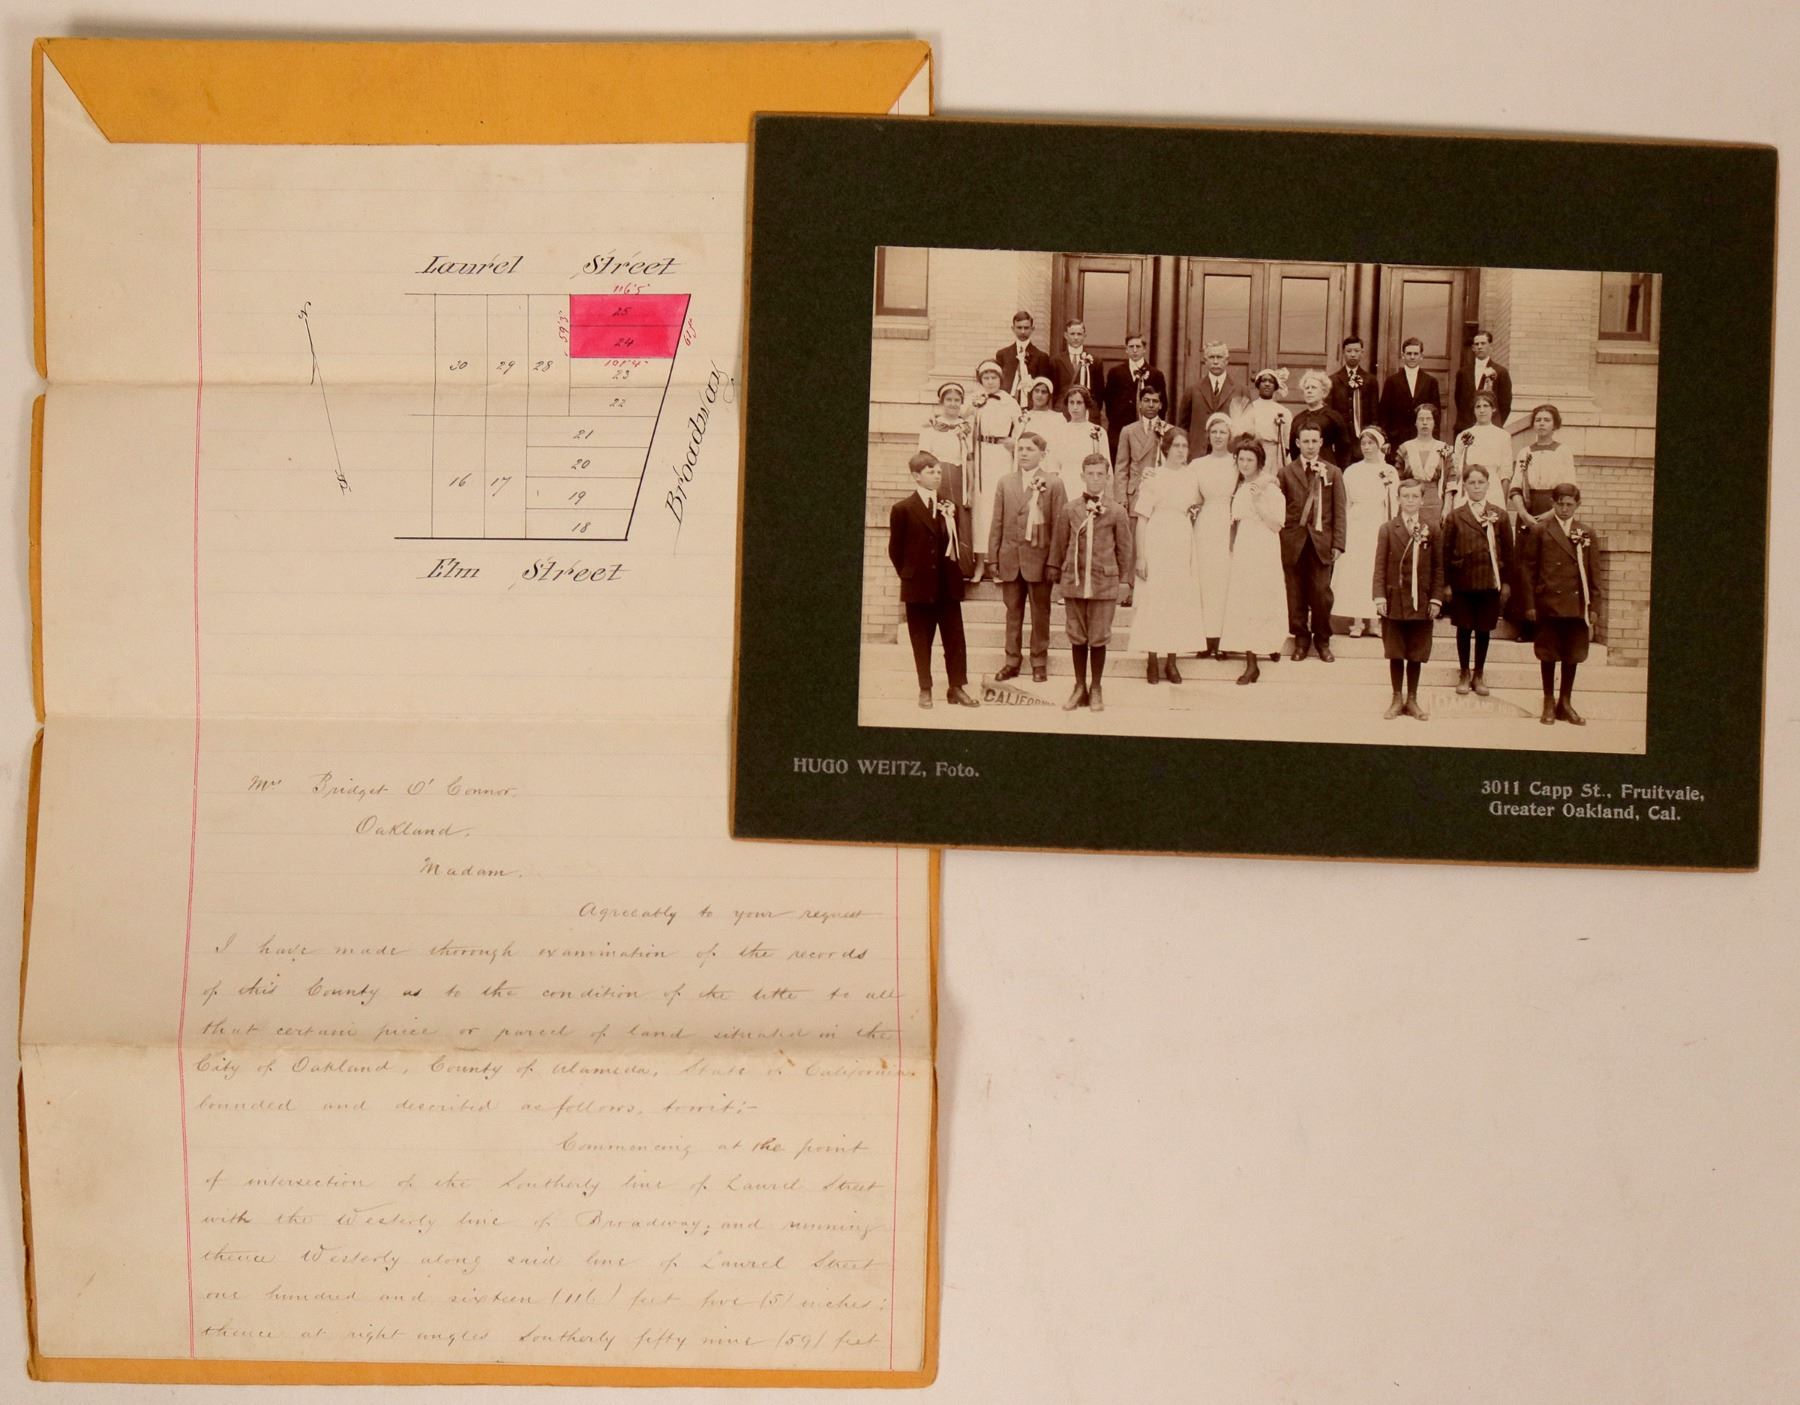 Laurel Street
116'5"
25
59'3"
24
61'5"
101'4"
23
30 29 28
22
21
20
16 17
19
18
Broadway
Elm Street
Mrs Bridget O'Connor.
Oakland.
Madam.
Agreeably to your request
I have made thorough examination of the records
of this County as to the condition of the title to all
that certain piece or parcel of land situated in the
City of Oakland, County of Alameda, State of California
bounded and described as follows, towit:-
Commencing at the point
of intersection of the Southerly line of Laurel Street
with the Westerly line of Broadway; and running
thence Westerly along said line of Laurel Street
one hundred and sixteen (116) feet five (5) inches;
thence at right angles Southerly fifty nine (59) feet
CALIFORNIA
HUGO WEITZ, Foto.
3011 Capp St., Fruitvale,
Greater Oakland, Cal.